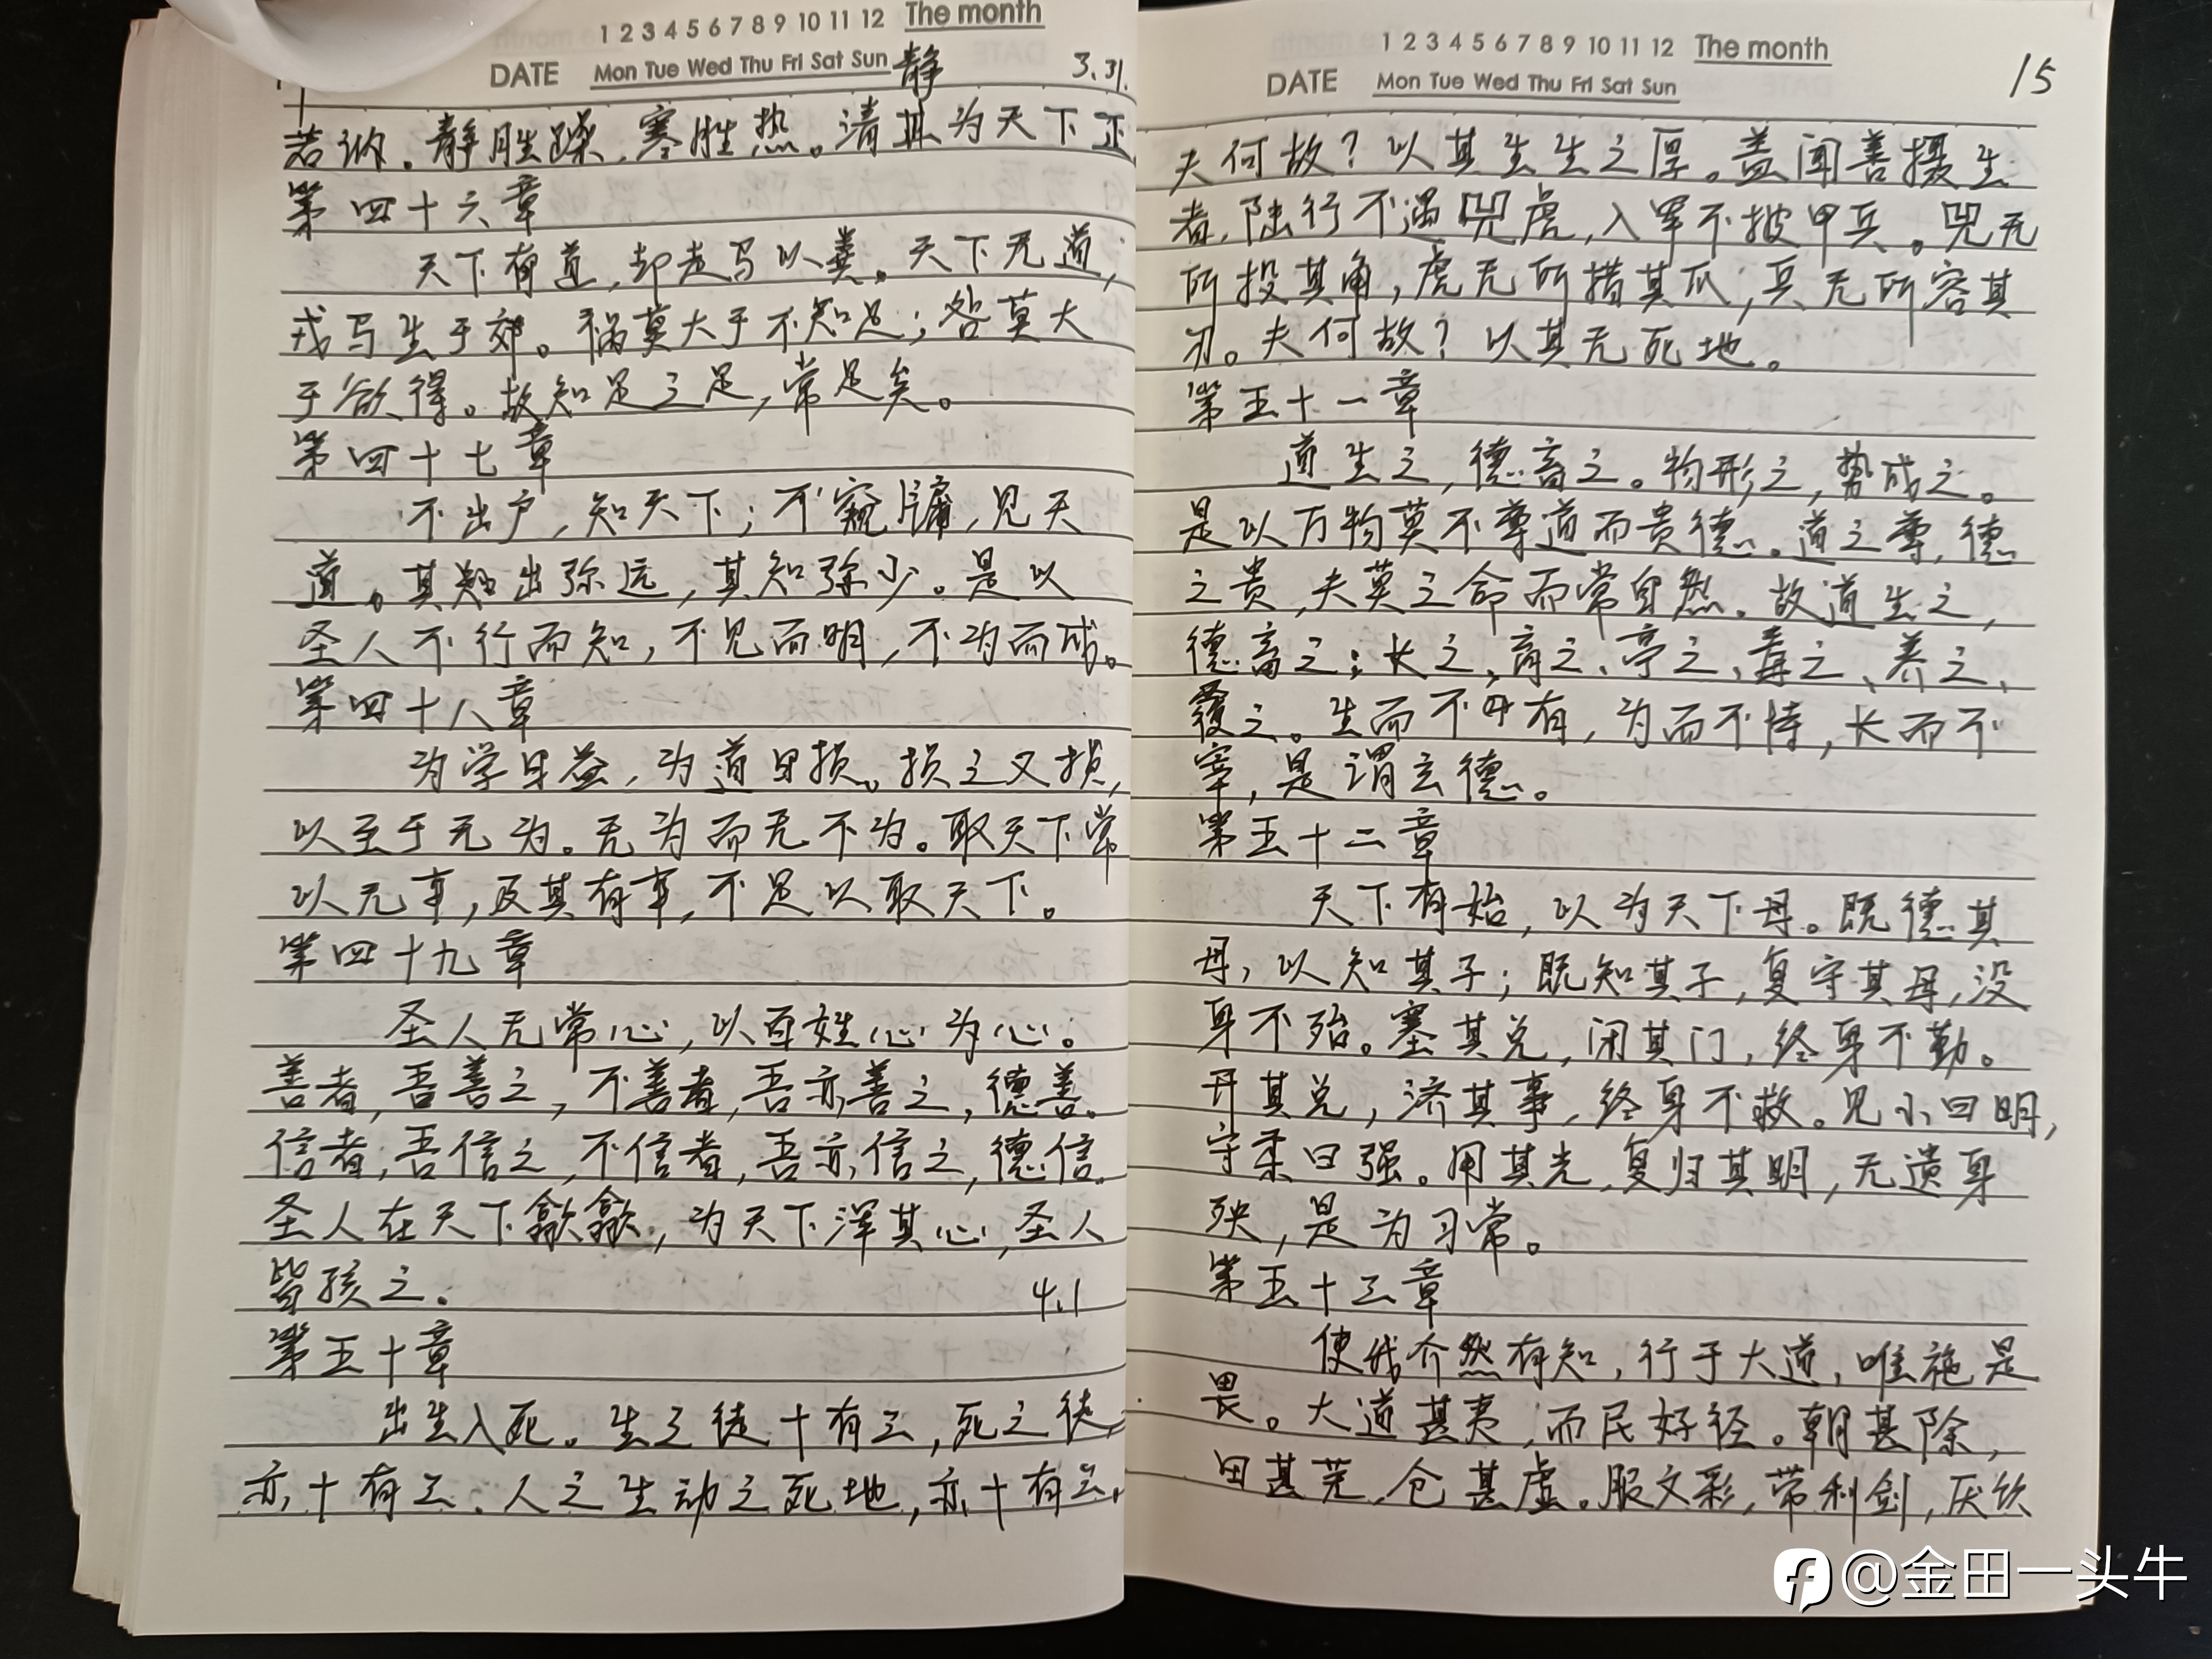 1 2 3 4 5 6 7 8 9 10 11 12 The month
DATE Mon Tue Wed Thu Fri Sat Sun 静 3.31.
若讷。静胜躁,寒胜热。清其为天下正
第四十六章
天下有道,却走马以粪。天下无道,
戎马生于郊。祸莫大于不知足;咎莫大
于欲得。故知足之足,常足矣。
第四十七章
不出户,知天下;不窥牖,见天
道。其出弥远,其知弥少。是以
圣人不行而知,不见而明,不为而成。
第四十八章
为学日益,为道日损。损之又损,
以至于无为。无为而无不为。取天下常
以无事,及其有事,不足以取天下。
第四十九章
圣人无常心,以百姓心为心。
善者,吾善之,不善者,吾亦善之,德善。
信者,吾信之,不信者,吾亦信之,德信。
圣人在天下歙歙,为天下浑其心,圣人
皆孩之。 4.1
第五十章
出生入死。生之徒十有三,死之徒,
亦十有三、人之生动之死地,亦十有三。
1 2 3 4 5 6 7 8 9 10 11 12 The month
DATE Mon Tue Wed Thu Fri Sat Sun 15
夫何故?以其生生之厚。盖闻善摄生
者,陆行不遇兕虎,入军不披甲兵。兕无
所投其角,虎无所措其爪,兵无所容其
刃。夫何故?以其无死地。
第五十一章
道生之,德畜之。物形之,势成之。
是以万物莫不尊道而贵德。道之尊,德
之贵,夫莫之命而常自然。故道生之,
德畜之;长之、育之、亭之、毒之、养之、
覆之。生而不有,为而不恃,长而不
宰,是谓玄德。
第五十二章
天下有始,以为天下母。既德其
母,以知其子;既知其子,复守其母,没
身不殆。塞其兑,闭其门,终身不勤。
开其兑,济其事,终身不救。见小曰明,
守柔曰强。用其光,复归其明,无遗身
殃,是为习常。
第五十三章
使我介然有知,行于大道,唯施是
畏。大道甚夷,而民好径。朝甚除,
田甚芜,仓甚虚。服文彩,带利剑,厌饮
@金田一头牛